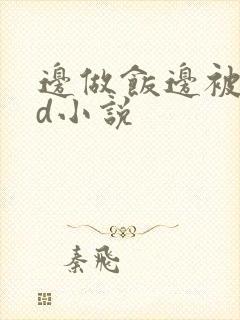 邊做飯邊被
d小説
秦飛